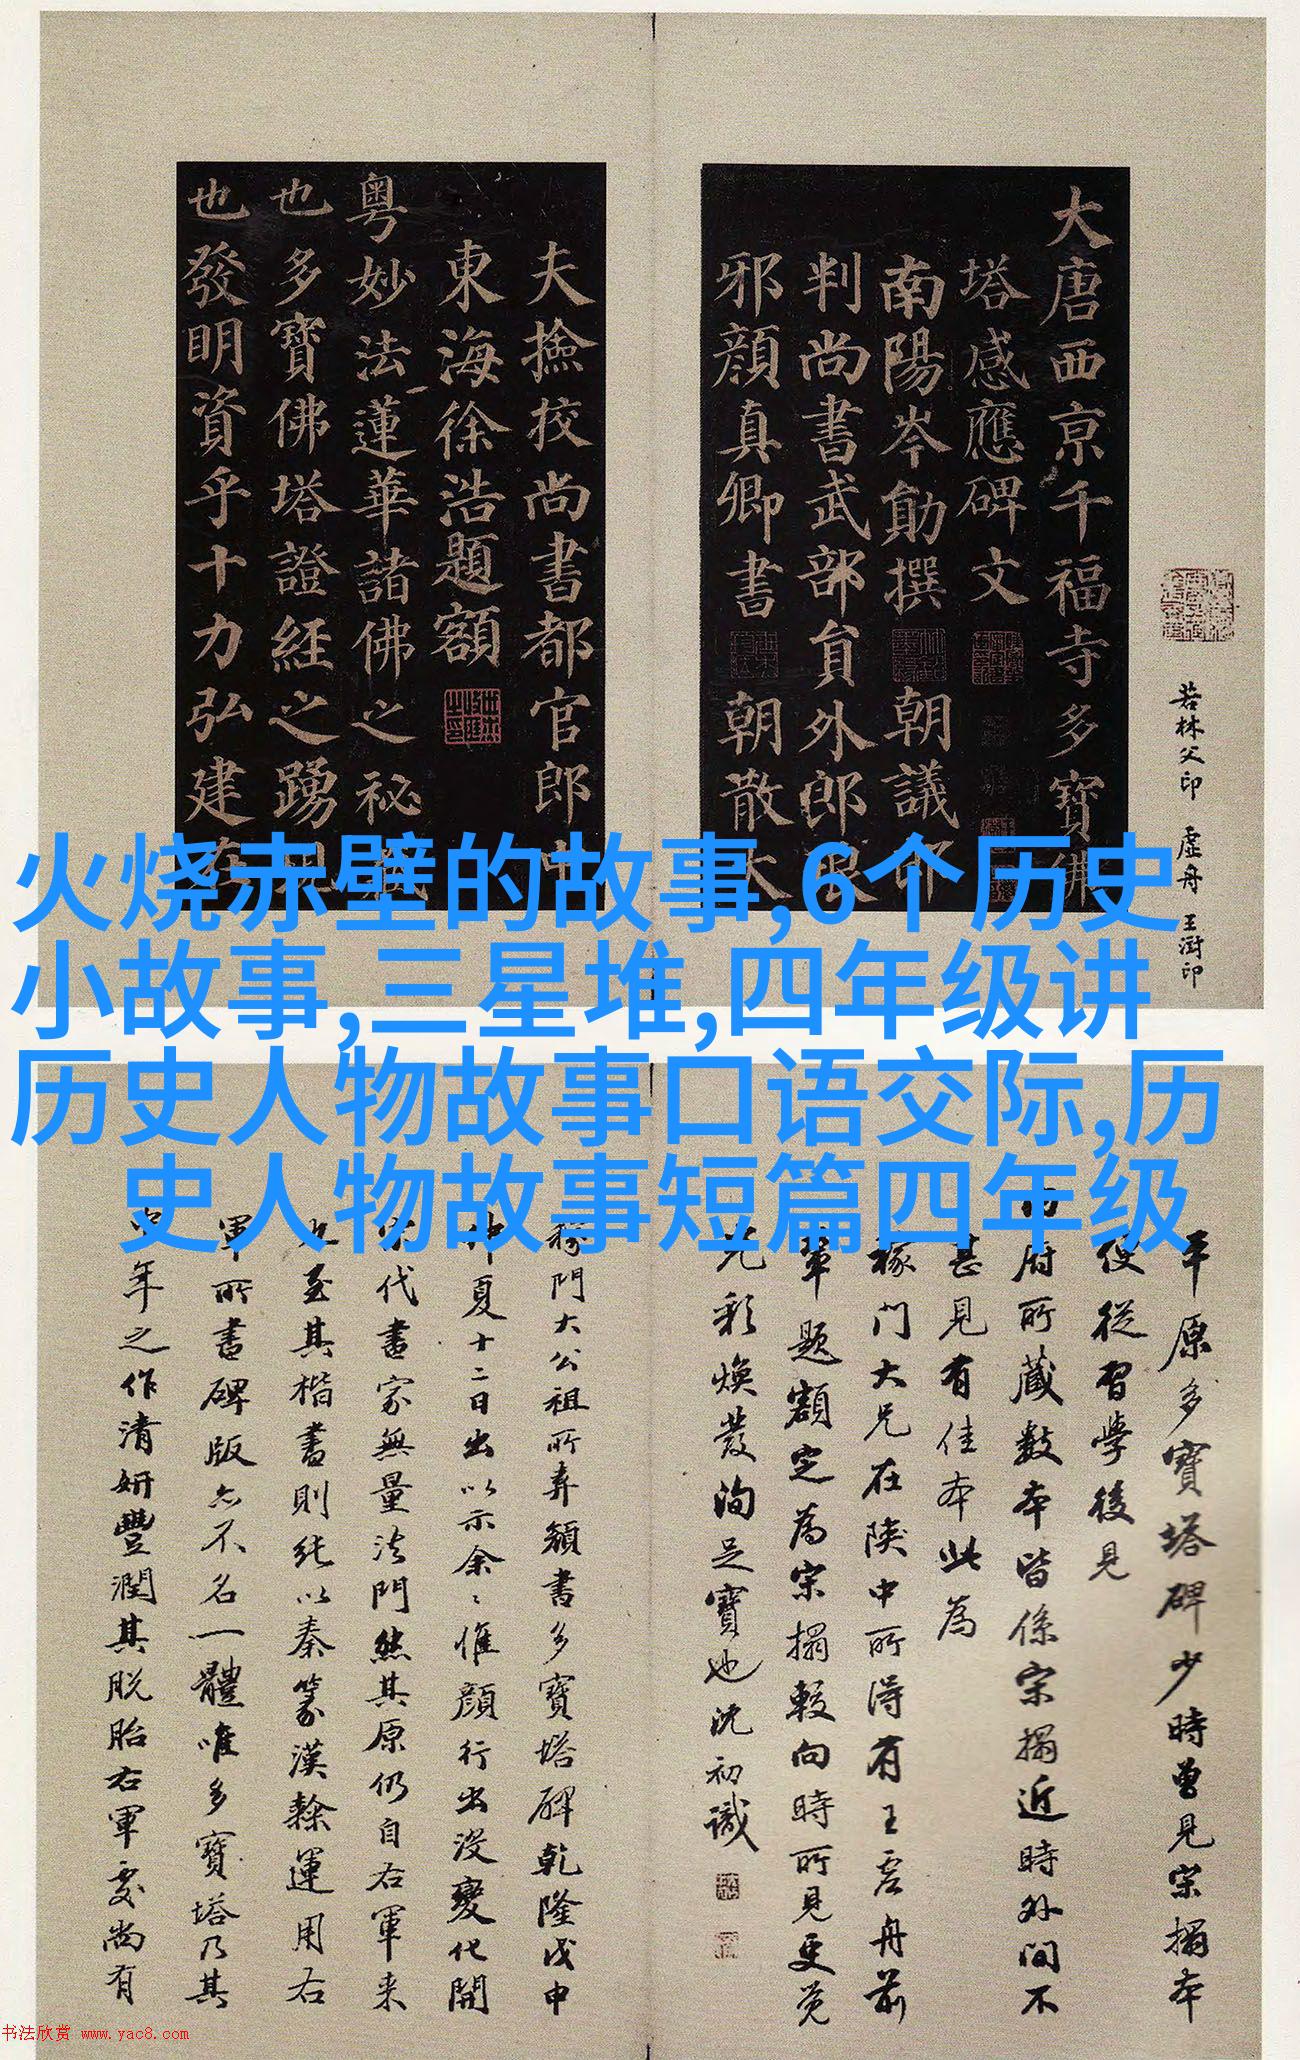 大唐西京千福寺多寶佛
塔感應碑文
南陽岑勛撰
朝議
判尚書武部員外郎
邪顏真卿書
朝散大
夫撿挍尚書都官郎
東海徐浩題額
粵妙法蓮華諸佛之秘
也多寶佛塔證經之踴
也發明資乎十力弘建
若林父印 虛舟 王澍印
火烧赤壁的故事,6个历史
小故事,三星堆,四年级讲
历史人物故事口语交际,历
史人物故事短篇四年级
平原多寶塔碑少時曾見宋搨本
從習學後見
府所藏數本皆係宋搨近時外間不
甚見有佳本此為
稼門大兄在陝中所得有王虛舟前
輩題額定為宋搨較向時所見更覺
光彩煥發洵足寶也沈初識
稼門大公祖所弆顏書多寶塔碑乾隆戊申
仲夏十二日出以示余余惟顏行出沒變化開
宋代書家無量法門然其原仍自右軍来
也至其楷書則純以秦篆漢隸運用右
軍所書碑版亦不名一體唯多寶塔乃其
中年之作清妍豐潤其脫胎右軍處尚有
书法欣赏 www.yac8.com